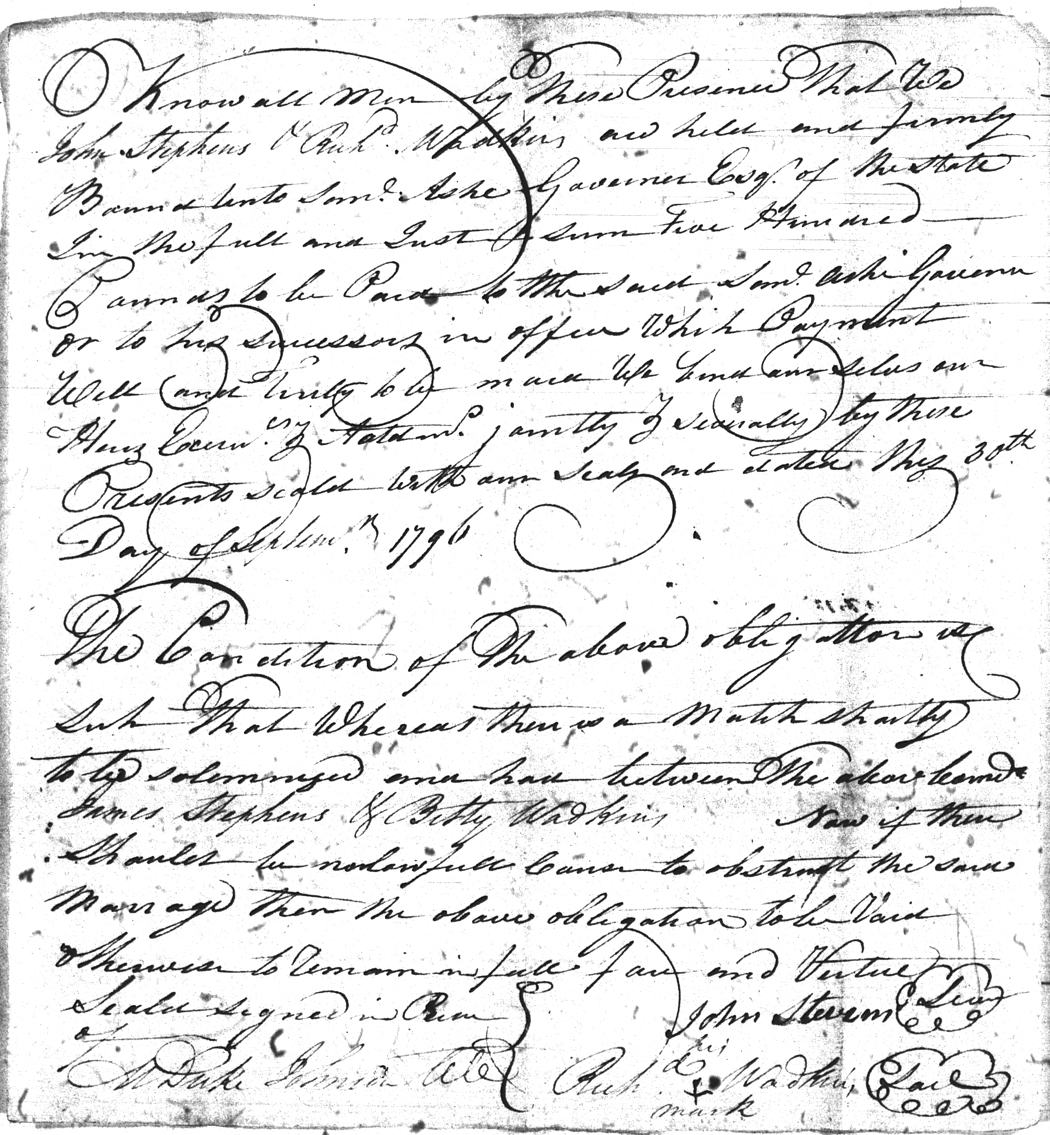 Know all Men by These Presence That We
John Stephens & Richd. Wadkins are held and firmly
Bound unto Saml. Ashe Governer Esqr. of the State
In the full and Just Sum Five Hundred
Pounds to be Paid to the said Saml. Ashe Governer
or to his Successors in office Which Payment
Well and truly to be maid We bind our selves our
Heirs jointly & severally by these
Presents seald with our seals and dated this 30th
Day of Septemr. 1796
The Condition of The above obligation is
Such That Whereas there is a Match shortly
to be solemnized and had between The above
James Stephens & Betty Wadkins Now if there
Should be nolawfull Cause to obstruct the said
Marrage then the above obligation to be Void
otherwise to Remain in full force and Vertue
Seald signed in
of
John Stevens Seal
M Duke Johnson
his
Rich Wadkins Seal
mark